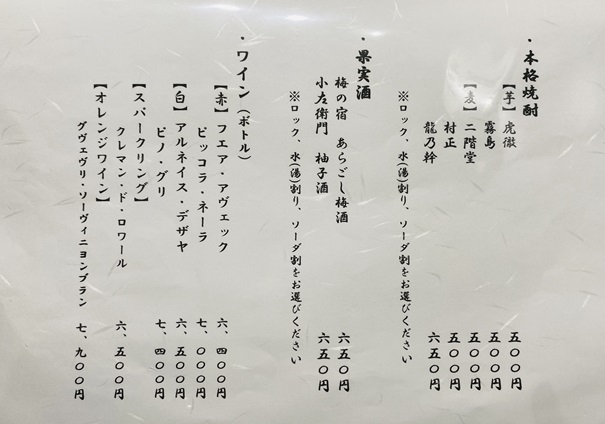 ・本格焼酎
【芋】虎徹 五〇〇円
霧島 五〇〇円
【麦】二階堂 五〇〇円
村正 五〇〇円
龍乃幹 六五〇円
※ロック、水(湯)割り、ソーダ割をお選びください
・果実酒
梅の宿 あらごし梅酒 六五〇円
小左衛門 柚子酒 六五〇円
※ロック、水(湯)割り、ソーダ割をお選びください
・ワイン(ボトル)
【赤】フエア・アヴェック 六、四〇〇円
ピッコラ・ネーラ 七、〇〇〇円
【白】アルネイス・デザヤ 六、五〇〇円
ピノ・グリ 七、四〇〇円
【スパークリング】
クレマン・ド・ロワール 六、五〇〇円
【オレンジワイン】
グヴェヴリ・ソーヴィニヨンブラン 七、九〇〇円